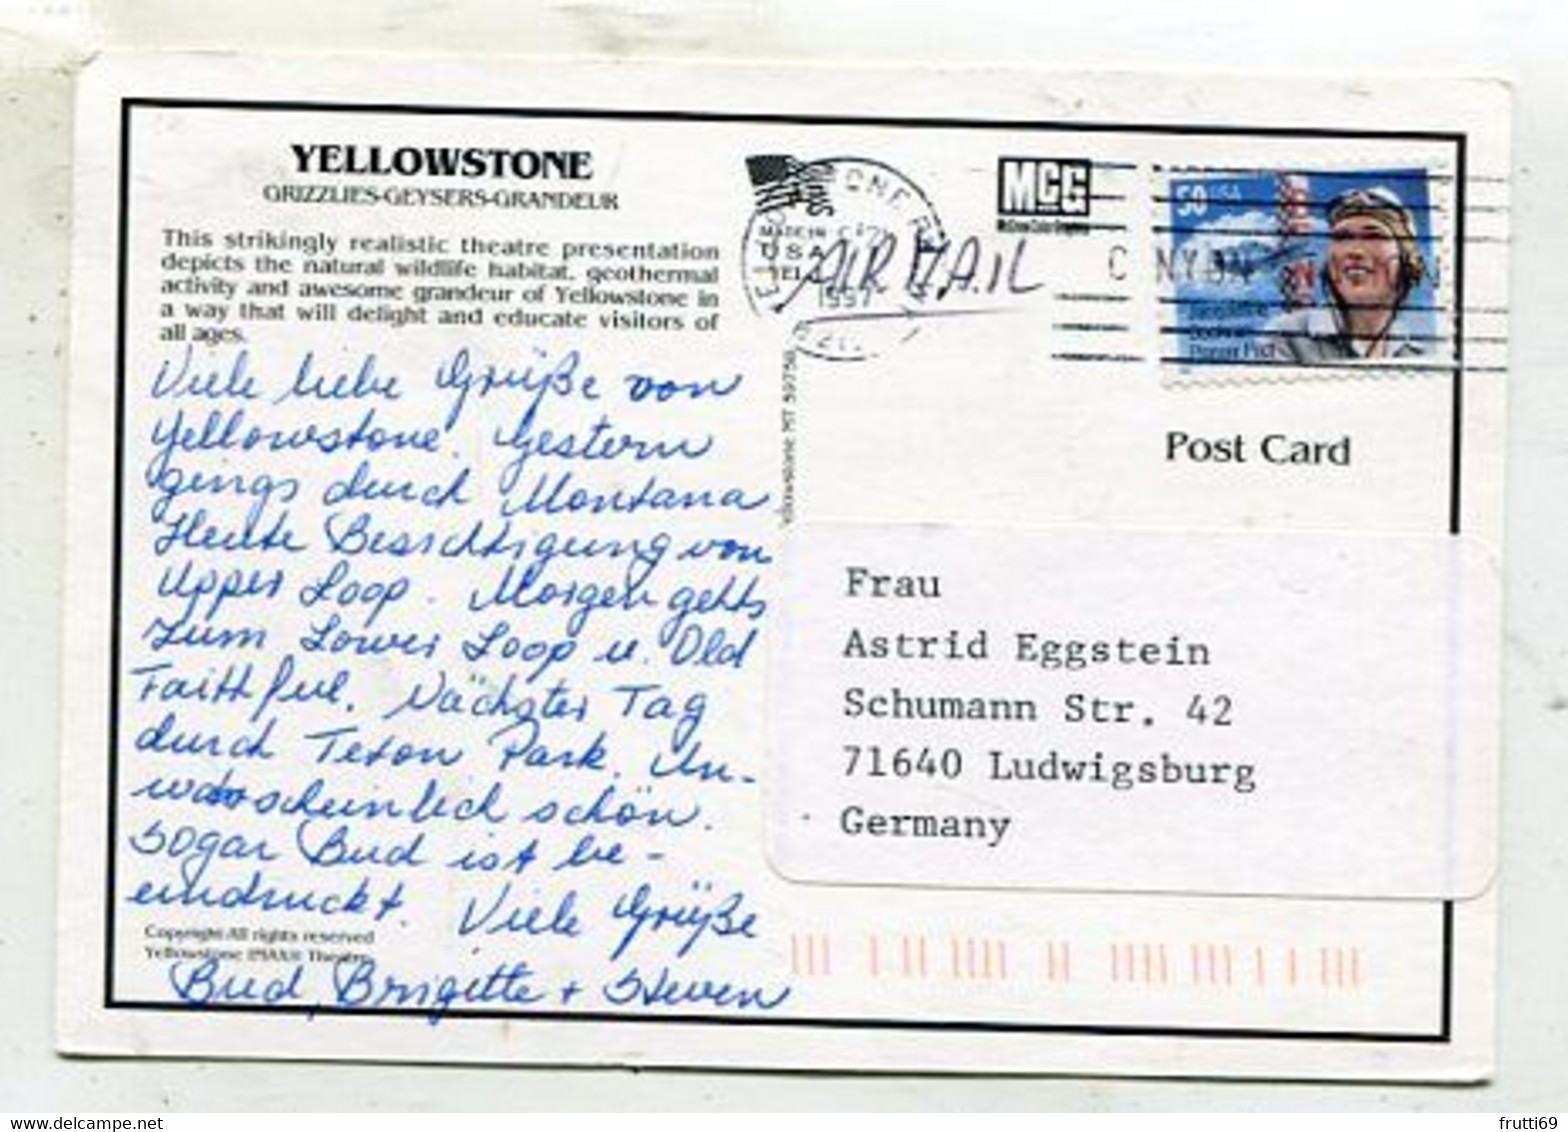 YELLOWSTONE
GRIZZLIES-GEYSERS-GRANDEUR
This strikingly realistic theatre presentation
depicts the natural wildlife habitat, geothermal
activity and awesome grandeur of Yellowstone in
a way that will delight and educate visitors of
all ages.
Viele liebe Grüße von
Yellowstone. Gestern
gings durch Montana
Heute Besichtigung von
Upper Loop. Morgen gehts
zum Lower Loop u. Old
Faithful. Nächster Tag
durch Teton Park. Un-
wahrscheinlich schön.
Sogar Bud ist be-
eindruckt. Viele Grüße
Bud, Brigitte + Steven
Copyright-All rights reserved
Yellowstone IMAX® Theatre
MADE IN
USA
1997
AIR MAIL
MCG
50 USA
Jacqueline
Cochran
Pioneer Pilot
Yellowstone MT 59758
Post Card
Frau
Astrid Eggstein
Schumann Str. 42
71640 Ludwigsburg
Germany
frutti69